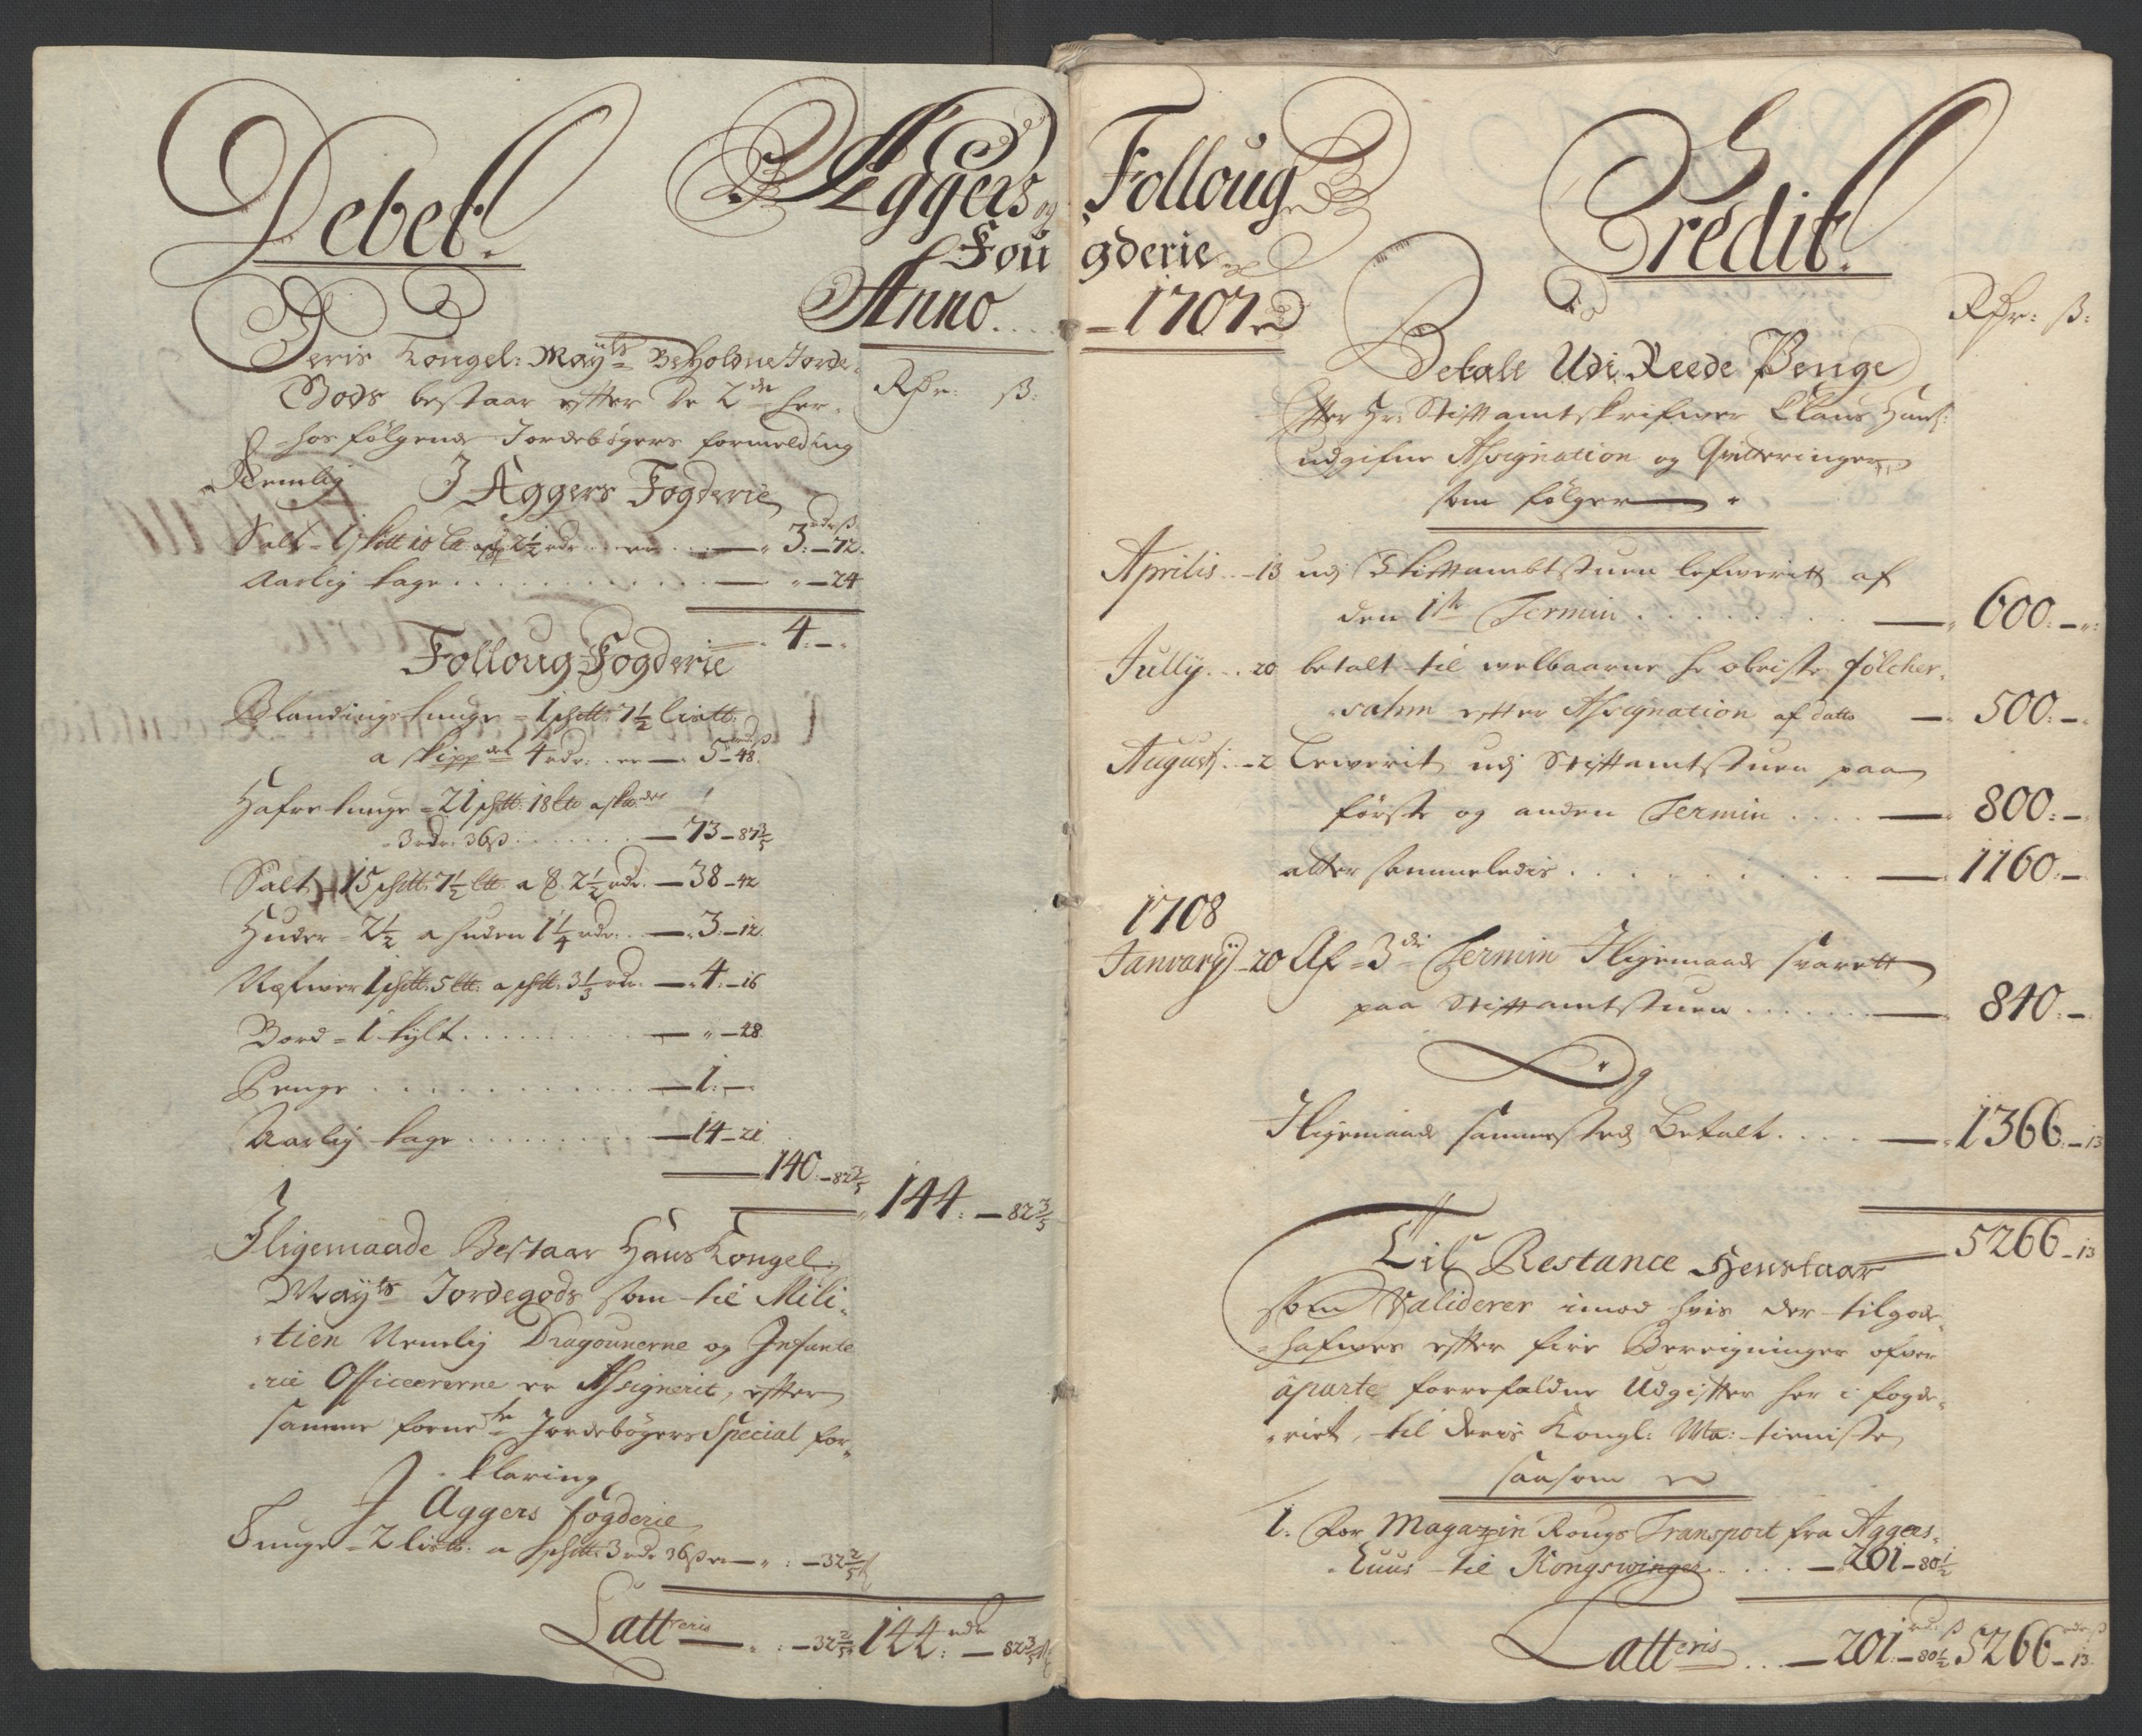 Debet.
Aggers og
Fou
Anno
Rdr: ß:
Deris Kongel: Mayts Beholdne Jorde-
Gods bestaar efter de 2de her-
hos følgende Jordebøgers formelding
Nemlig I Aggers Fogderie
Salt = 1 sk℔ 10 ℔ 2½ rdr er 3: – 72.
Aarlig tage . . . . „ – 24
4: – „
Folloug Fogderie
Blandings tunge = 1 sk℔ 7½ lis℔:
a skippdet 4 rdr: er — 5 – 48.
Hafre tunge = 21 sk℔: 18 ℔
3 rdr: 36 ß . . . . — 73 – 87 3/5
Salt = 15 sk℔: 7½ ℔ a 2½ rdr. — 38 – 42
Huder = 2½ a huden 1¼ rdr. — 3: – 12.
Næfwer 1 sk℔: 5 ℔: a sk℔: 3⅓ rdr. — 4: – 16
Bord = 1 tylt . . . . — „ – 28.
Penge . . . . — 1: –
Aarlig tage . . . . — 14 – 21
140: – 82 3/5
144: – 82 3/5
Iligemaade Bestaar Hans Kongel:
Mayts Jordegods som til Mili-
tien Nemlig Dragounerne og Infante
rie Officererne er Assignerit, efter
samme forneste Jordebøgers Special for-
klaring
I Aggers fogderie
Tunge = 2 lis℔: a sk℔: 3 rdr 36 ß er — „ : – 32 2/5
Latteris — „ : – 32 2/5 144: rdr – 82 3/5 ß
Folloug
gderie
1707
Credit.
Rdr: ß:
Betalt Udi Reede Penge
Efter Hr: Stiftamtskrifwer Claus Hans:
udgifne Assignation og Qvitteringer
som følger
Aprilis – 13 udj Stiftambtstuen lefwerit af
den 1ste Termin . . . . — 600: – „
Jullij . . 20 betalt til welbaarne Hr obriste følcher-
sahm efter Assignation af dato — 500: –
Augustj – 2 Leiverit udj Stiftamtstuen paa
første og anden Termin . . . . — 800: –
atter sammeledis . . . . — 1160: –
1708
Januarij – 20 Af = 3die Termin Iligemaade svarett
paa Stiftamtstuen . . . . — 840: –
Og
Iligemaade sammesteds Betalt . . . . — 1366 – 13
5266 – 13
Til Restance Henstaar
som Validerer imod hvis der tilgode-
hafwes efter fire Bereigninger ofver
aparte forrefaldne Udgifter her i fogde-
riet, til Deris Kongl: Ma: tieniste
saasom er
1. For Magazin Rougs Transport fra Aggers-
huus til Kongswinger . . . . — 201 – 80½
Latteris . . . — 201: – 80½ 5266 – 13